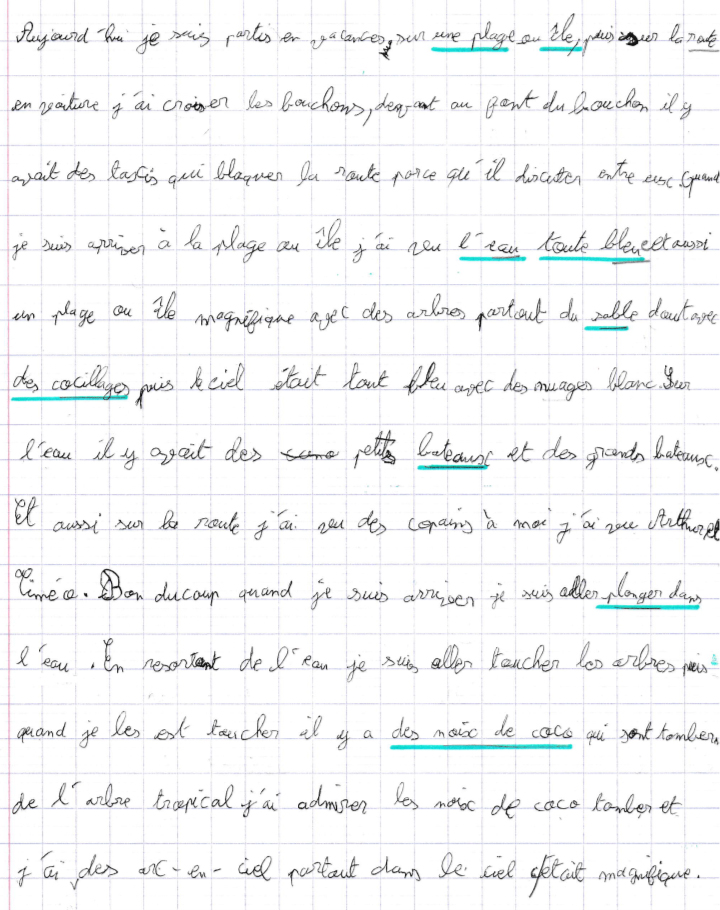 Aujourd'hui je suis partis en vacances, sur une plage ou île, puis sur la route
en voiture j'ai croiser les bouchons, devant au pont du bouchon il y
avait des taxis qui blaquer la route parce qu'il discuter entre eux. Quand
je suis arriver à la plage ou île j'ai veu l'eau toute bleue et aussi
un plage ou île magnéfique avec des arbres partout du sable dout avec
des cocillages puis le ciel était tout bleu avec des nuages blanc. Sur
l'eau il y avait des petits bateaux et des grands bateaux.
Et aussi sur la route j'ai veu des copains à moi j'ai veu Arthur et
Timéo. Bon ducoup quand je suis arriver je suis aller plonger dans
l'eau. En resortant de l'eau je suis aller toucher les arbres puis
quand je les est toucher il y a des noix de coco qui sont tombers
de l'arbre tropical j'ai admirer les noix de coco tomber et
j'ai des arc-en-ciel partout dans le ciel c'était magnifique.